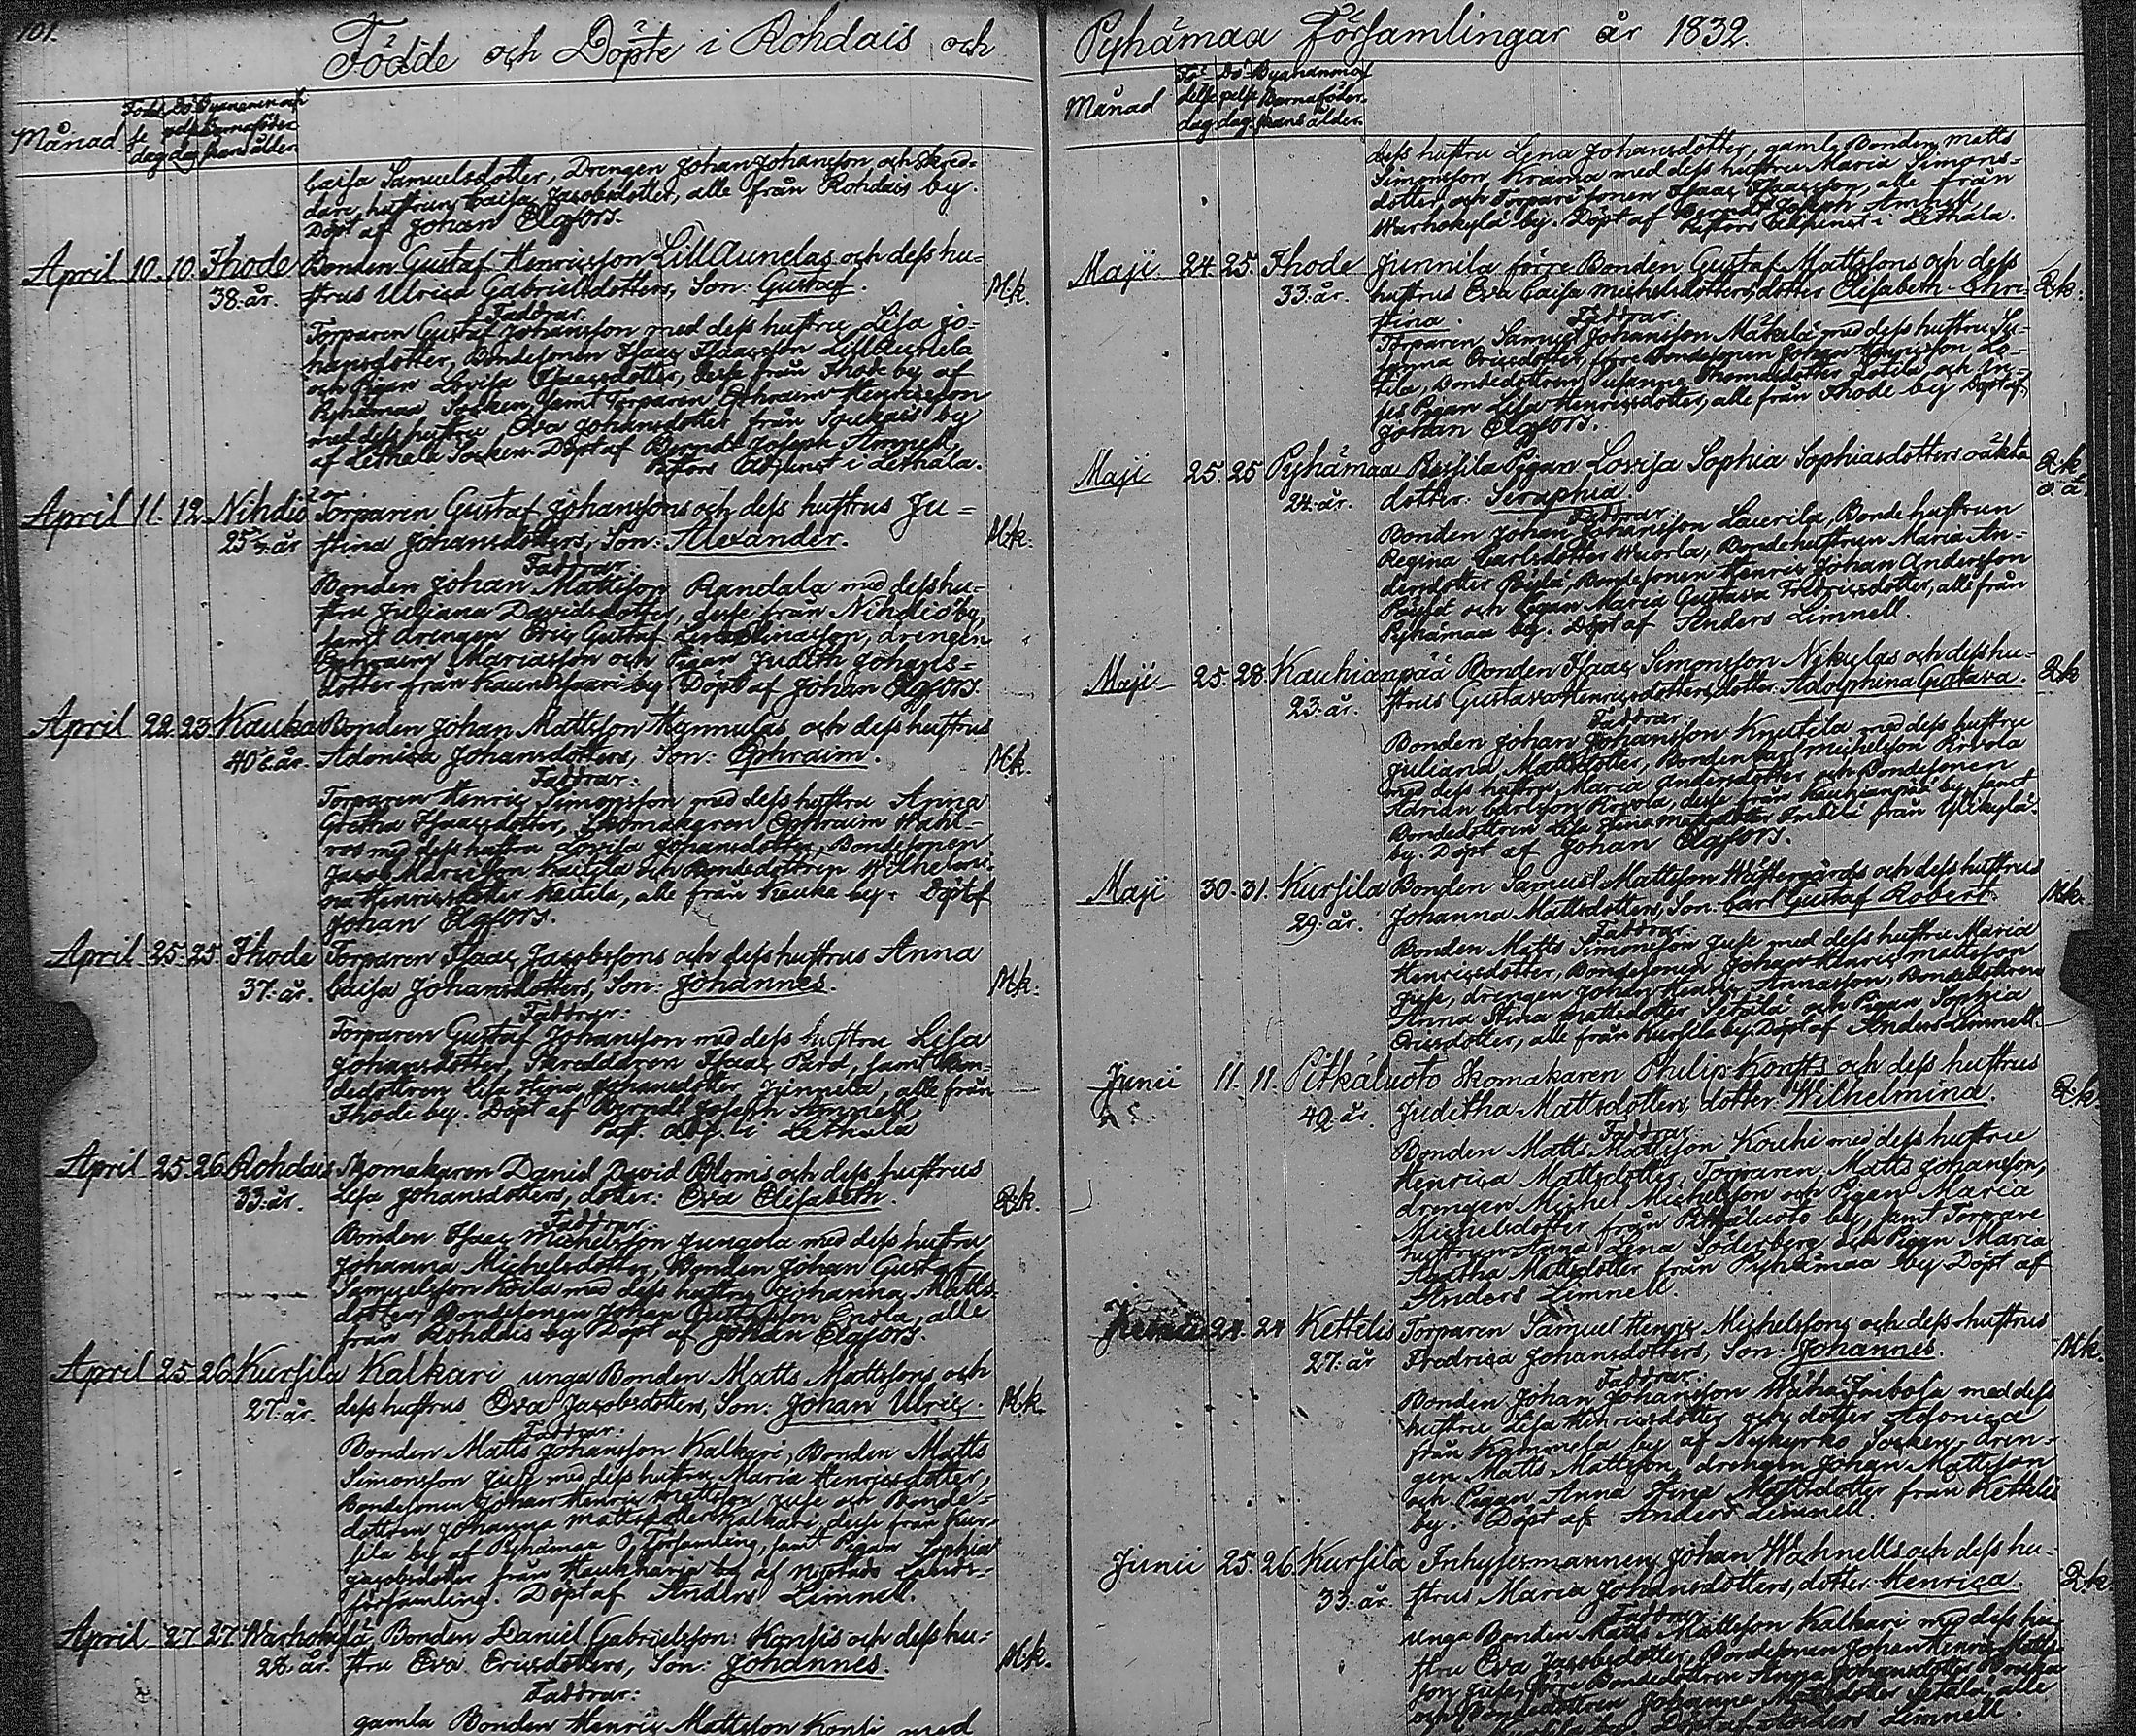 101.
Födde och Döpte i Rohdais och
Månad
Caisa Samuelsdotter, Drengen Johan Johansson och Skred-
dare hustrun Caisa Jacobsdotter, alle från Rohdais by.
Döpt af Johan Elgfors.
April 10. 10. Ihode Bonden Gustaf Henricsson LillAunelas och dess hu-
38. år. strus Ulrica Gabrielsdotters, Son: Gustaf. M.k.
Faddrar.
Torparen Gustaf Johansson med dess hustru Lisa Jo-
hansdotter, Bondesonen Isaac Isaacsson LillAunela
och Pigan Lovisa Isaacsdotter, desse från Ihode by af
Pyhämaa Socken, samt Torparen Ephraim Henricsson
med dess hustru Eva Johansdotter från Soukais by
af Lethala Socken. Döpt af Berndt Joseph Amnell,
Pastors Adjunct i Lethala.
April 11. 12. Nihdiö Torparen Gustaf Johanssons och dess hustrus Ju-
stina Johansdotters, Son: Alexander. M.k.
Faddrar:
Bonden Johan Mattsson Randala med dess hu-
stru Juliana Davidsdotter, desse från Nihdiö by,
samt drengen Eric Gustaf drengen
Ephraim Mariasson och Pigan Judith Johans-
dotter från Kaunissaari by. Döpt af Johan Elgfors.
April 22. 23. Kauka Bonden Johan Mattsson Hannulas och dess hustrus
Adonica Johansdotters, Son: Ephraim. M.k.
Faddrar:
Torparen Henric Simonsson med dess hustru Anna
Gretha Isaacsdotter, Skomakaren Ephraim Wahl-
ros med dess hustru Lovisa Johansdotter, Bondesonen
Jacob Kaitila och Bondedottren Wilhelmi-
na Henricsdotter Kaitila, alle från Kauka by. Döpt af
Johan Elgfors.
April 25. 25. Ihode Torparen Isaac Jacobssons och dess hustrus Anna
37. år. Caisa Johansdotters, Son: Johannes. M.k.
Faddrar:
Torparen Gustaf Johansson med dess hustru Lisa
Johansdotter, Skreddaren Isaac Pård, samt Bon-
dedottren Lisa Stina Johansdotter Junnila, alle från
Ihode by. Döpt af Berndt Joseph Amnell,
Past. adj. i Lethala
April 25 26 Rohdais Skomakaren Daniel David Bloms och dess hustrus
33. år. Lisa Johansdotters, dotter: Eva Elisabeth. Q.k.
Faddrar:
Bonden Isaac Michelsson Jungela med dess hustru
Johanna Michelsdotter, Bonden Johan Gustaf
Samuelsson Koila med dess hustru Johanna Matts-
dotter, Bondesonen Johan Gustafsson Enola, alle
från Rohdais by. Döpt af Johan Elgfors.
April 25 26 Kursila Kalkari unga Bonden Matts Mattssons och
27. år. dess hustrus Eva Jacobsdotters, Son: Johan Ulric. M.k.
Faddrar:
Bonden Matts Johansson Kalkari, Bonden Matts
Simonsson Juse med dess hustru Maria Henricsdotter,
Bondesonen Johan Henric Mattsson Juse och Bonde-
dottren Johanna Mattsdotter Kalkari, desse från Kur-
sila by af Pyhämaa Ö, Församling, samt Pigan Sophia
Jacobsdotter från Haukharja by af Nystads Lands-
församling. Döpt af Anders Limnell.
April 27 27. Warhokylä, Bonden Daniel Gabrielsson Konsis och dess hu-
28. år. stru Eva Ericsdotters, Son: Johannes. M.k.
Faddrar:
gamla Bonden Henric Mattsson Konsi med
Pyhämaa Församlingar år 1832.
Månad
dess hustru Lena Johansdotter, gamla Bonden Matts
Simonsson Krama med dess hustru Maria Simons-
dotter, och Torpare sonen Isaac Isaacsson, alle från
Warhokylä by. Döpt af Berndt Joseph Amnell
Pastors Adjunct i Lethala.
Maji 24. 25. Ihode Junnila förre Bonden Gustaf Mattssons och dess
33. år. hustrus Eva Caisa Michelsdotters, dotter Elisabeth Chri- Q.k.
stina. Faddrar
Torparen Samuel Johansson Mäkelä med dess hustru Su-
sanna Ericsdotter, förre Bondesonen Johan Henricsson Lo-
tila, Bondedottren Susanna Thomasdotter Lotila och
Pigan Lisa Henricsdotter, alle från Ihode by. Döpt af
Johan Elgfors.
Maji 25. 25 Pyhämaa Pigan Lovisa Sophia Sophiasdotters oäkta Q.k
24. år. dotter: Seraphia. o.ä.
Faddrar:
Bonden Johan Johansson Laurila, Bonde hustrun
Regina Carlsdotter Wuorla, Bondehustrun Maria An-
dersdotter Bondesonen Henric Johan Andersson
och Pigan Maria Gustava Fredricsdotter, alle från
Pyhämaa by. Döpt af Anders Limnell.
Maji 25. 28. Kauhianpää Bonden Isaac Simonsson Nikulas och dess hu-
23. år. strus Gustava Henricsdotters, dotter: Adolphina Gustava. Q.k
Faddrar
Bonden Johan Johansson Knutila med dess hustru
Juliana Mattsdotter, Bonden Carl Michelsson Krvola
med dess hustru Maria Andersdotter och Bondesonen
Adrian Carlsson Krvola, desse från Kauhianpää by, samt
Bondedottren Lisa Stina Mattsdotter från Ylikylä
by. Döpt af Johan Elgfors.
Maji 30. 31. Kursila Bonden Samuel Mattsson Wästergårds och dess hustrus
29. år. Johanna Mattsdotters, Son: Carl Gustaf Robert. M.k.
Faddrar:
Bonden Matts Simonsson Juse med dess hustru Maria
Henricsdotter, Bondesonen Johan Henric Mattsson
Juse, drengen Johan Henric Annasson, Bondedottren
Anna Stina Mattsdotter Setälä och Pigan Sophia
Ericsdotter, alle från Kursila by. Döpt af Anders Limnell.
Junii 11. 11. Pitkäluoto Skomakaren Philip Konfts och dess hustrus
40. år Juditha Mattsdotters, dotter: Wilhelmina. Q.k.
Faddrar:
Bonden Matts Mattsson Kouhi med dess hustru
Henrica Mattsdotter, Torparen Matts Johansson,
drengen Michel Michelsson och Pigan Maria
Michelsdotter från Pitkäluoto by, samt Torpare
hustrun Anna Lena Söderberg och Pigan Maria
Agatha Mattsdotter från Pyhämaa by. Döpt af
Anders Limnell.
Junii 24. 24 Kettelis Torparen Samuel Henric Michelssons och dess hustrus
27. år Fredrica Johansdotters, Son: Johannes. M.k.
Faddrar:
Bonden Johan Johansson Wähä Jmbola med dess
hustru Lisa Henricsdotter och dotter Adonica
från Kammela by af Nykyrko Socken, dren-
gen Matts Mattsson, drengen Johan Mattsson
och Pigan Anna Stina Mattsdotter från Kettelis
by. Döpt af Anders Limnell.
Junii 25. 26. Kursila Inhysesmannen Johan Wahnells och dess hu-
33. år. strus Maria Johansdotters, dotter: Henrica. Q.k.
Faddrar:
unga Bonden Matts Mattsson Kalkari med dess hu-
stru Eva Jacobsdotter, Bondesonen Johan Henric Matts-
son Juse, förre Bondedottren Anna Johansdotter
och Bondedottren Johanna Mattsdotter Setälä, alle
Döpt af Anders Limnell.